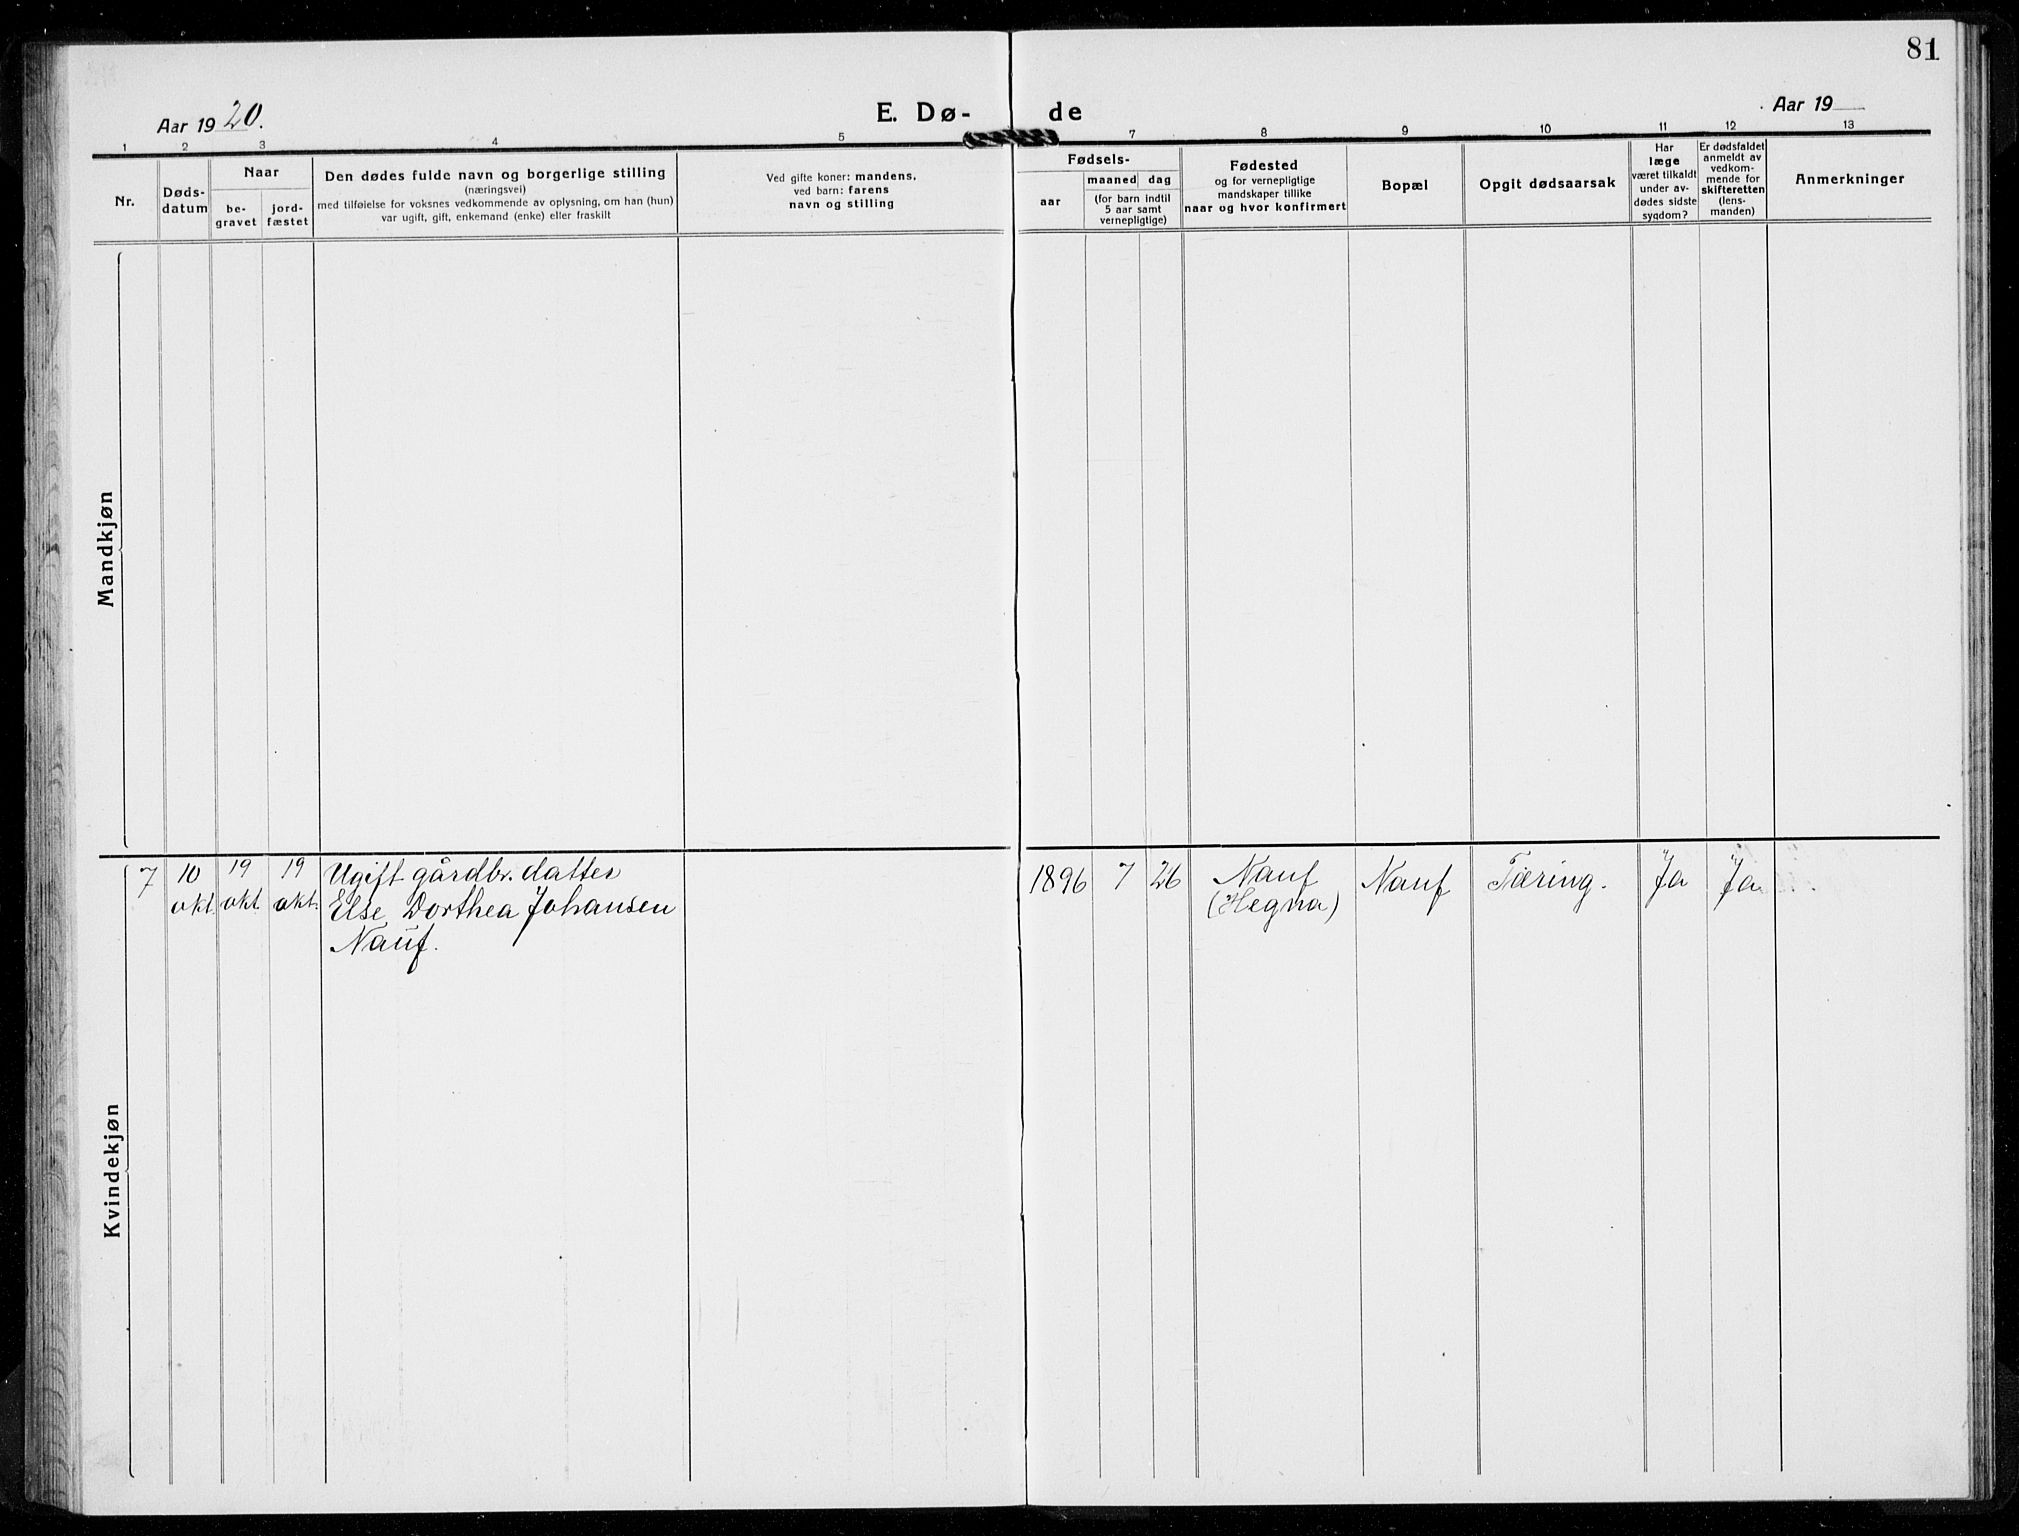 81
Aar 1920.
E. Dø-
de
Aar 19
1 2 3 4 5 7 8 9 10 11 12 13
Nr.
Døds-
datum
Naar
be-
gravet
jord-
fæstet
Den dødes fulde navn og borgerlige stilling
(næringsvei)
med tilføielse for voksnes vedkommende av oplysning, om han (hun)
var ugift, gift, enkemand (enke) eller fraskilt
Ved gifte koner: mandens,
ved barn: farens
navn og stilling
Fødsels-
aar
maaned dag
(for barn indtil
5 aar samt
vernepligtige)
Fødested
og for vernepligtige
mandskaper tillike
naar og hvor konfirmert
Bopæl
Opgit dødsaarsak
Har
læge
været tilkaldt
under av-
dødes sidste
sygdom?
Er dødsfaldet
anmeldt av
vedkom-
mende for
skifteretten
(lens-
manden)
Anmerkninger
Mandkjøn
Kvindekjøn
7
10
okt.
19
okt.
19
okt.
Ugift gårdbr. datter
Else Dorthea Johansen
Nauf.
1896
7
26
Nauf
(Hegna)
Nauf
Tæring.
Ja
Ja